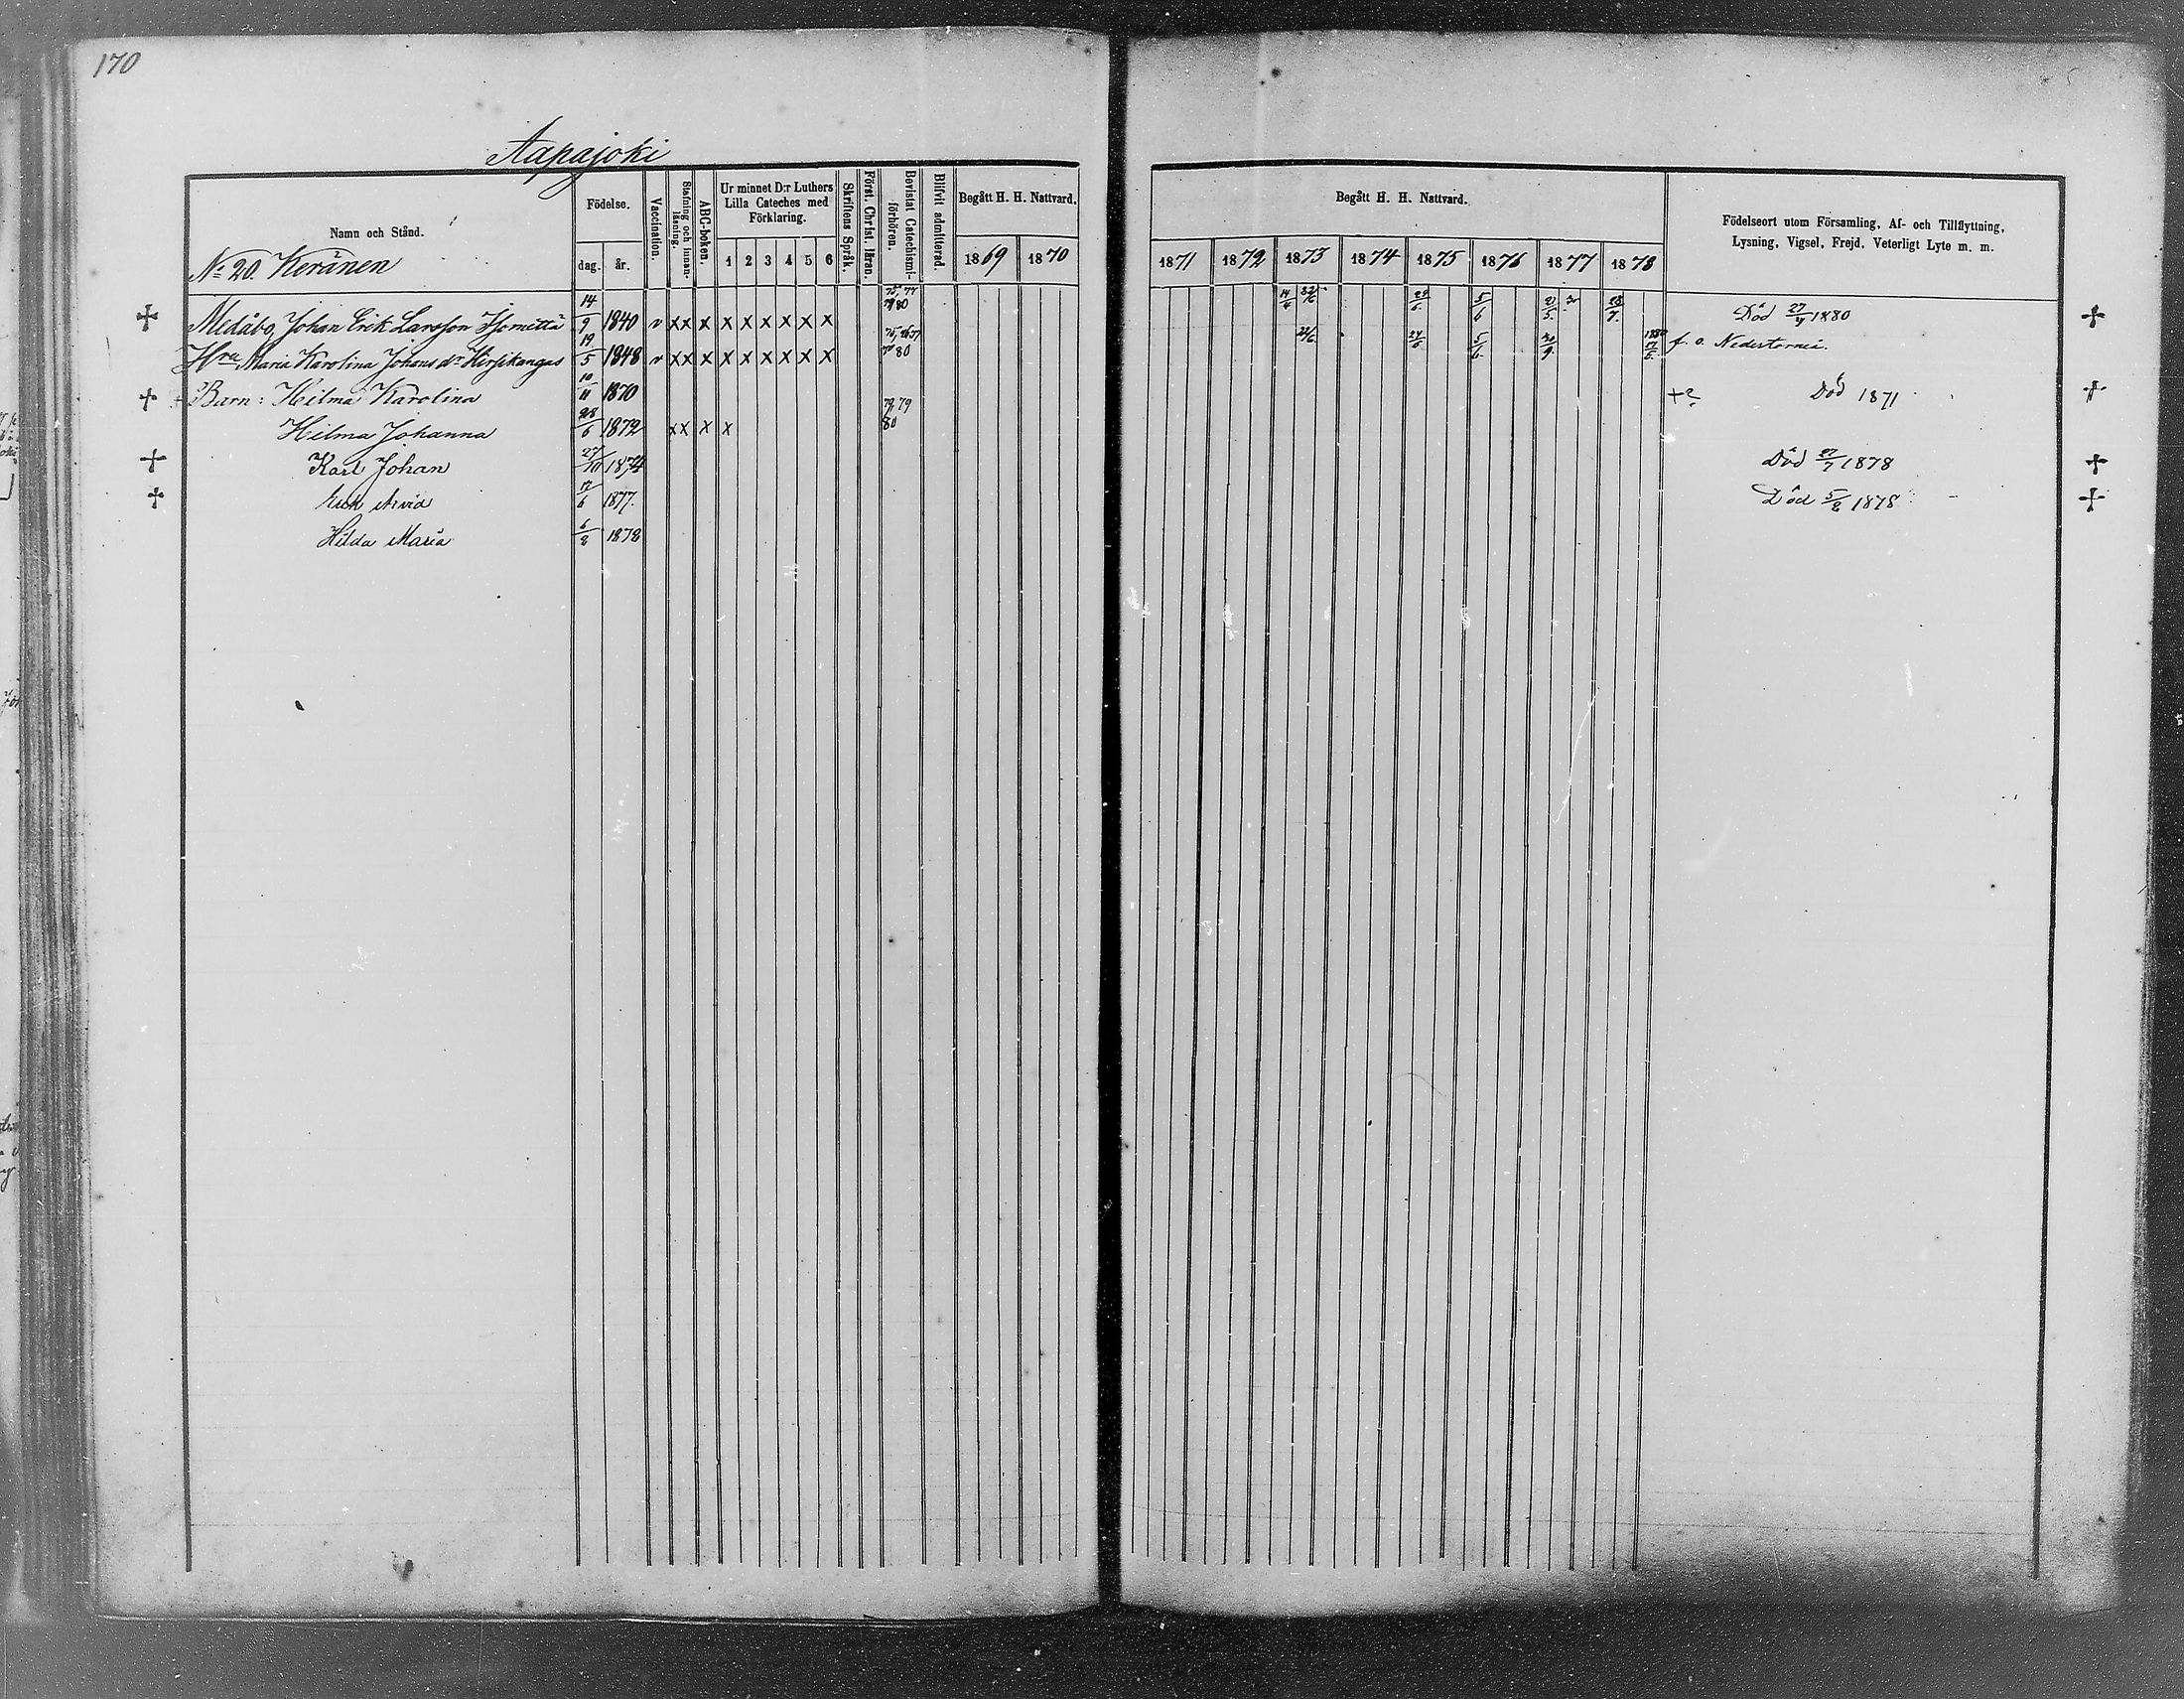 170
Aapajoki
Namn och Stånd.
Födelse.
dag.
år.
Vaccination.
Stafning och innan-läsning.
ABC-boken.
Ur minnet D:r Luthers
Lilla Cateches med
Förklaring.
1 2 3 4 5 6
Skriftens Språk.
Först. Christ. läran.
Bevistat Catechismi-förhören.
Blifvit admitterad.
Begått H. H. Nattvard.
1869 1870
Begått H. H. Nattvard.
1871 1872 1873 1874 1875 1876 1877 1878
Födelseort utom Församling, Af- och Tillflyttning,
Lysning, Vigsel, Frejd, Veterligt Lyte m. m.
No 20. Keränen
Medåbo, Johan Erik Larsson 14/9 1840 v xx x x x x x x x 80 5/6 28/7. Död 27/4 1880
Hru Maria Karolina Johans dr 19/5 1848 v xx x x x x x x x 80 22/6 5/6. f. o. Nedertorneå.
Barn: Hilma Karolina 10/11 1870 Död 1871
Hilma Johanna 28/6 1872 xx x x 79 80
Karl Johan 27/10 1874 Död 27/7 1878
Erik Arvid 12/6 1877. Död 5/8 1878
Hilda Maria 6/8 1878